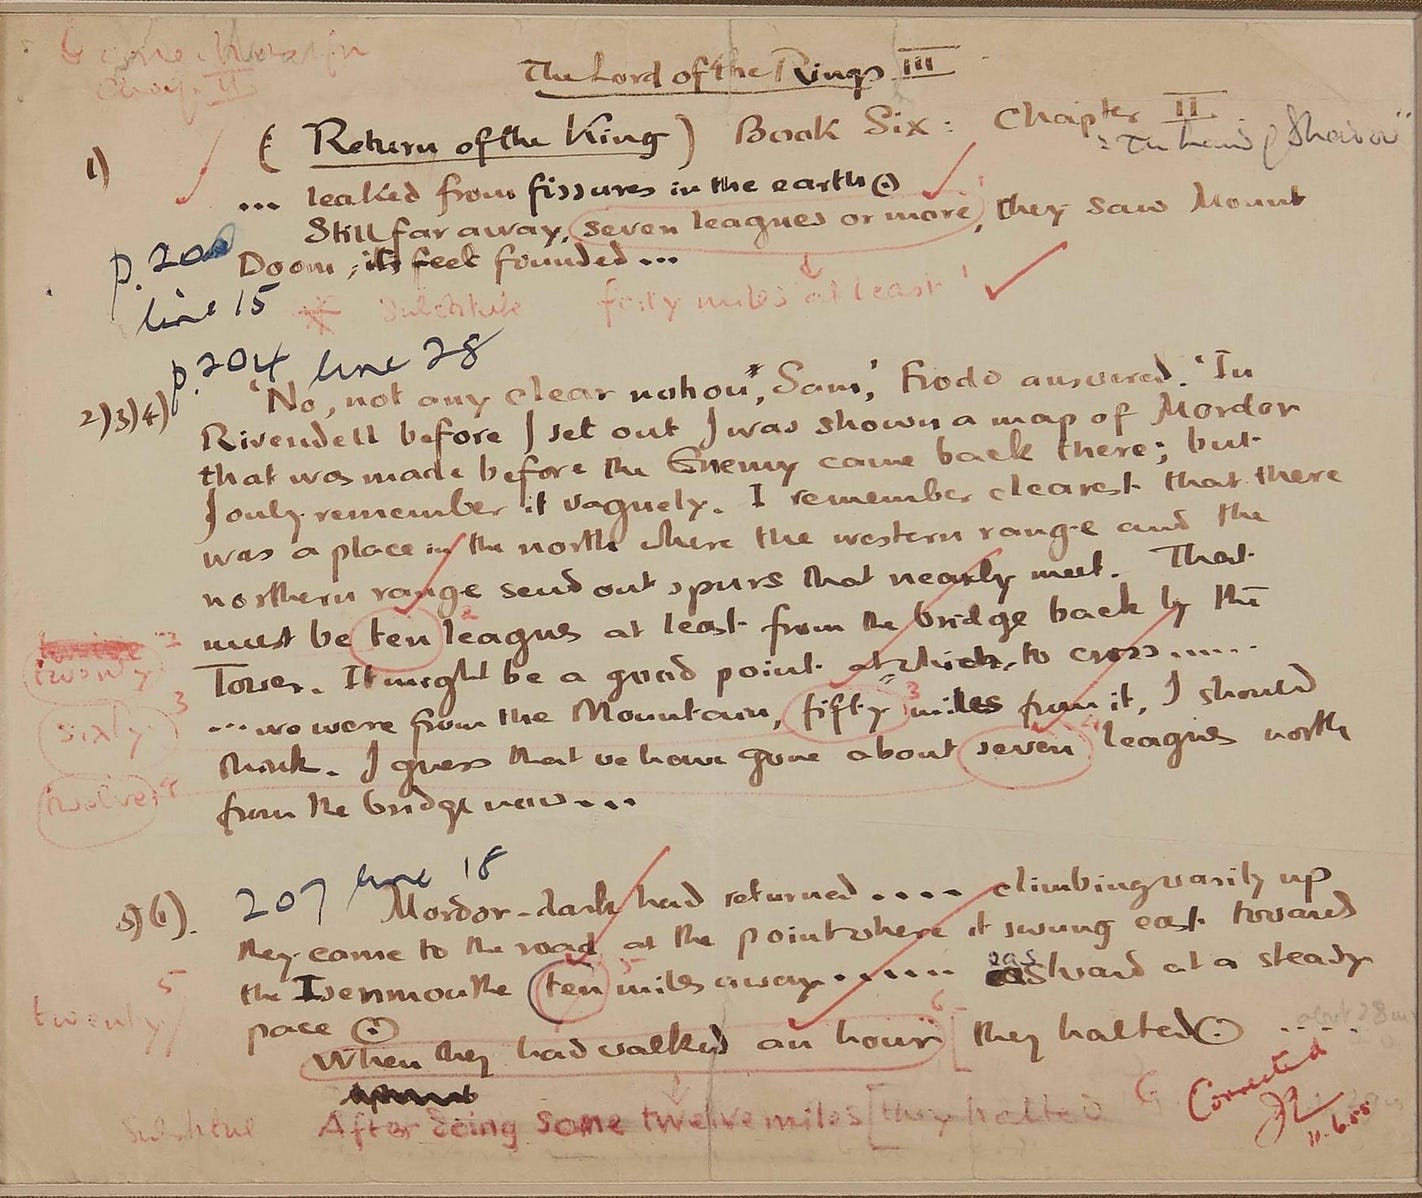 6 corrections in
Chap. II
The Lord of the Rings III
( Return of the King ) Book Six: Chapter II
"The Land of Shadow"
1)
... leaked from fissures in the earth ⊙
Still far away, seven leagues or more, they saw Mount
p. 200
Doom, its feet founded ...
line 15
* Substitute forty miles at least
p. 204 line 28
2)3)4)
'No, not any clear notion, Sam,' Frodo answered. 'In
Rivendell before I set out I was shown a map of Mordor
that was made before the Enemy came back there; but
I only remember it vaguely. I remember clearest that there
was a place in the north where the western range and the
northern range send out spurs that nearly meet. That
must be ten leagues at least from the bridge back by the
twenty 2
Tower. It might be a good point at which to cross......
sixty 3
... we were from the Mountain, fifty 3 miles from it, I should
think. I guess that we have gone about seven 4 leagues north
twelve 4
from the bridge now....
5)6).
207 line 18
Mordor-dark had returned .... climbing warily up
they came to the road at the point where it swung east toward
the Isenmouthe ten 5 miles away...... eastward at a steady
twenty 5
pace ⊙
When they had walked an hour 6 [ they halted ⊙ .....
about 28 m
Substitute After doing some twelve miles [ they halted 6
Corrected
JR
11.6.55